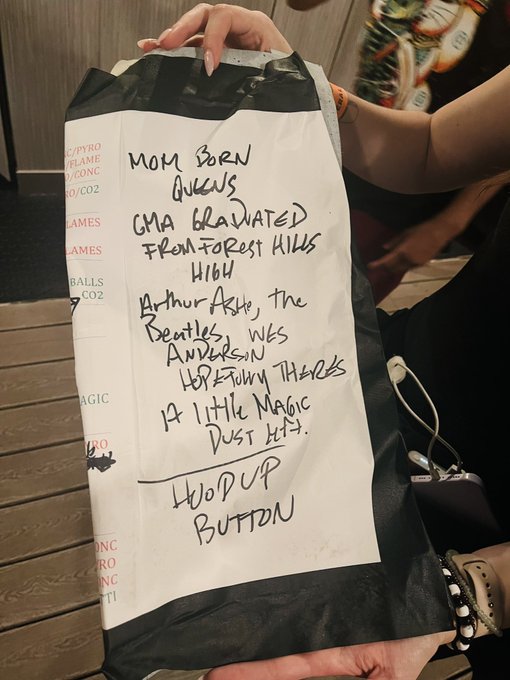 C/PYRO
/FLAME
O/CONC
RO/CO2
LAMES
LAMES
BALLS
CO2
AGIC
RO
ONC
RO
NC
TI
MOM BORN
QUEENS
GMA GRADUATED
FROM FOREST HILLS
HIGH
Arthur Ashe, the
Beatles, WES
ANDERSON
HOPEFULLY THERES
A little MAGIC
DUST left.
HOOD UP
BUTTON